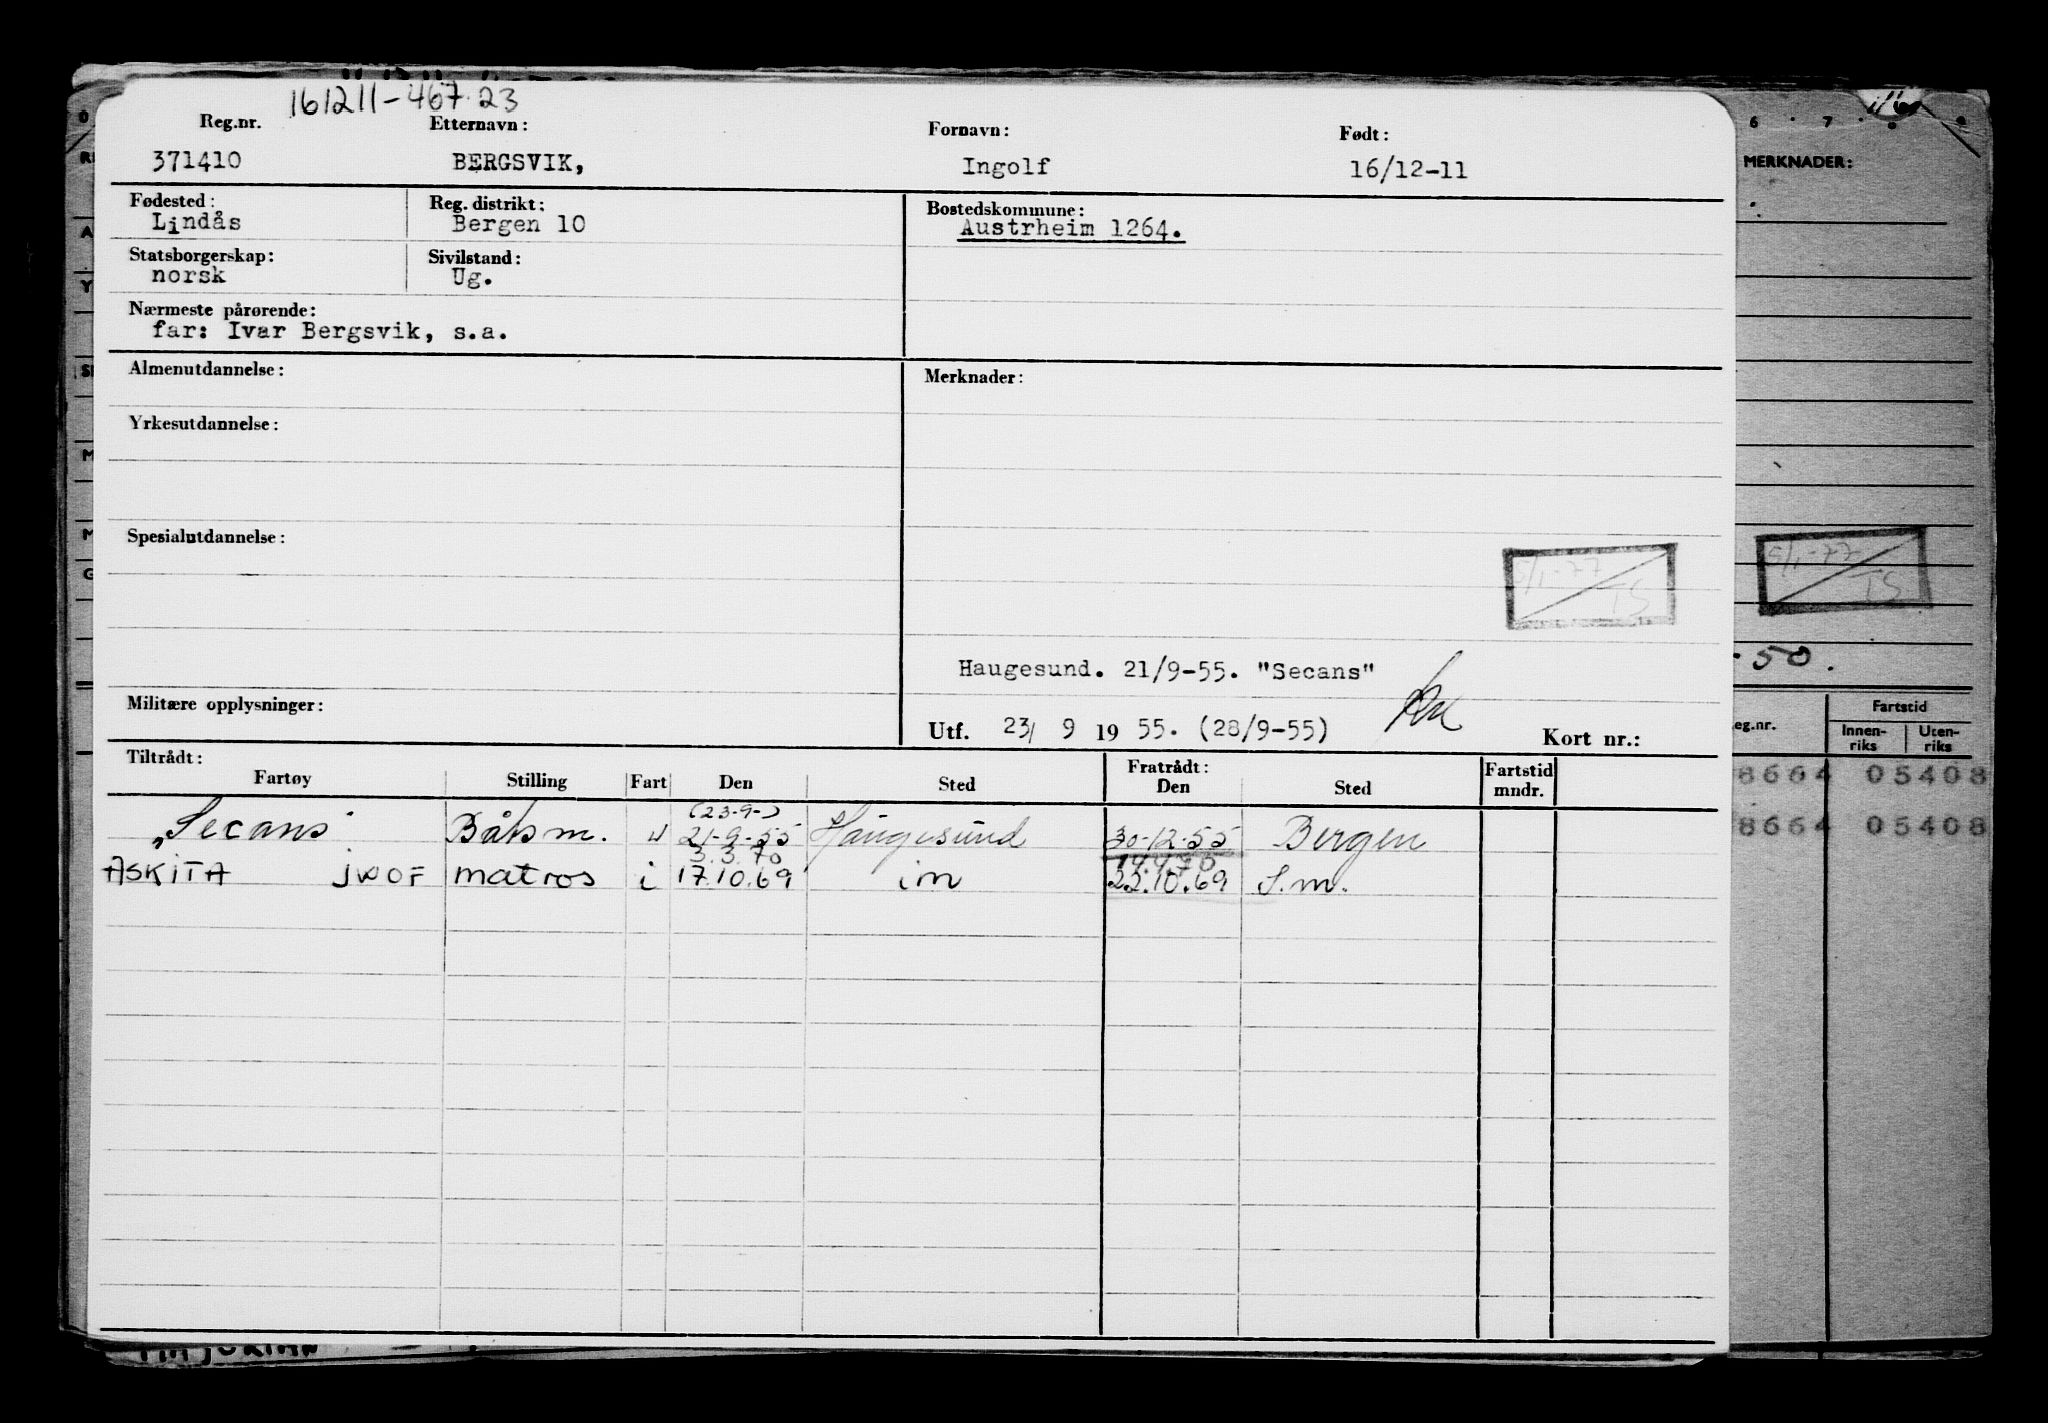 161211-467 23
Reg.nr. Etternavn: Fornavn: Født:
371410 BERGSVIK, Ingolf 16/12-11
Fødested: Reg. distrikt: Bostedskommune:
Lindås Bergen 10 Austrheim 1264.
Statsborgerskap: Sivilstand:
norsk Ug.
Nærmeste pårørende:
far: Ivar Bergsvik, s.a.
Almenutdannelse: Merknader:
Yrkesutdannelse:
Spesialutdannelse:
5/1-77
TS
Haugesund. 21/9-55. "Secans"
Militære opplysninger:
Utf. 23/ 9 19 55. (28/9-55) Kort nr.:
Tiltrådt: Fratrådt: Fartstid
Fartøy Stilling Fart Den Sted Den Sted mndr.
(23-9-)
„Secans" Båtsm. u 21-9-55 Haugesund 30-12-55 Bergen
3.3.70 14.4.70
ASKITA JWOF matros i 17.10.69 im 22.10.69 S.m.
6 7 8 9
MERKNADER:
5/1-77
TS
-50.
eg.nr. Fartstid
Innen-riks Uten-riks
8664 05408
8664 05408